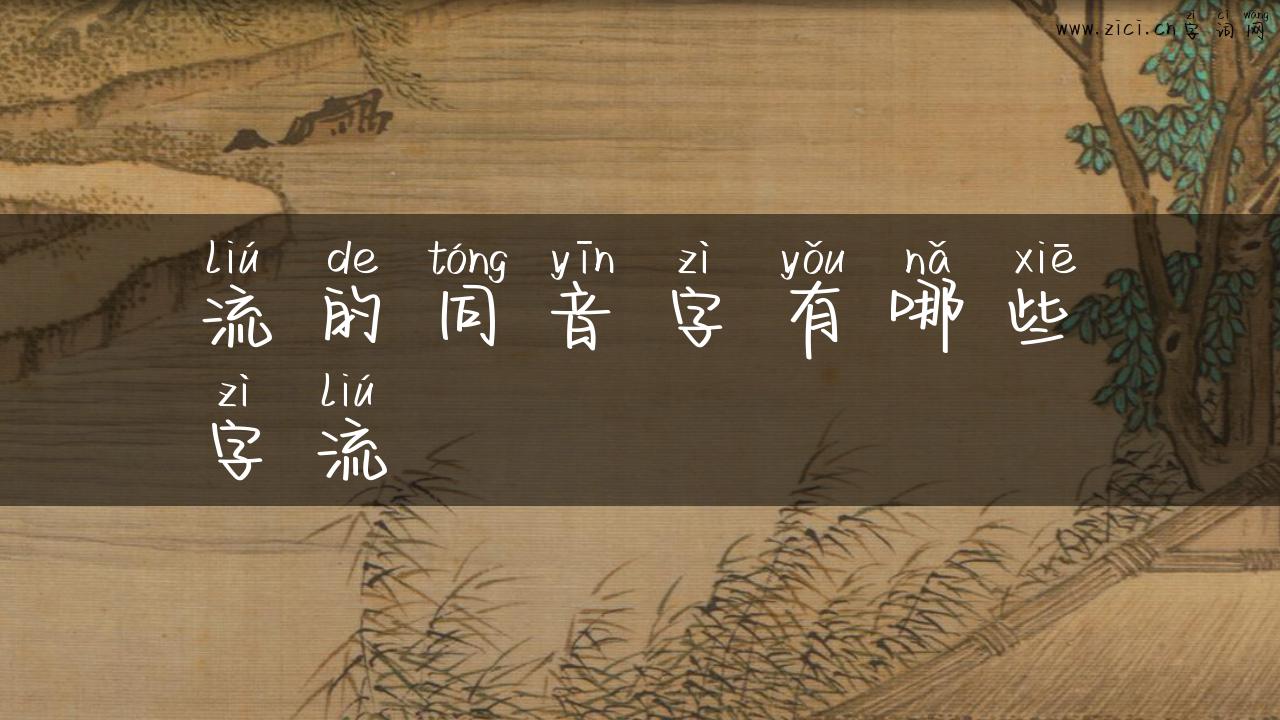 zì cí wǎng
www.zici.cn字词网
liú de tóng yīn zì yǒu nǎ xiē
流的同音字有哪些
zì liú
字流